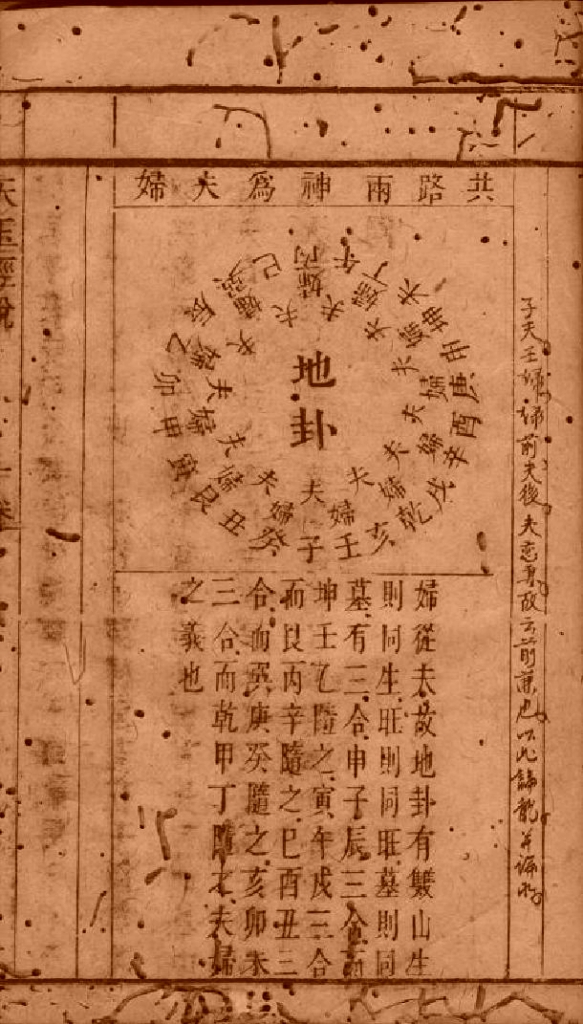 共路兩神為夫婦
地卦
子
壬
亥
乾
戌
辛
酉
庚
申
坤
未
丁
午
丙
巳
巽
辰
乙
卯
甲
寅
艮
丑
癸
夫
婦
夫
婦
夫
婦
夫
婦
夫
婦
夫
婦
夫
婦
夫
婦
夫
婦
夫
婦
夫
婦
夫
婦
婦從夫故地卦有雙山生
則同生旺則同旺墓則同
墓有三合申子辰三合而
坤壬乙隨之寅午戌三合
而艮丙辛隨之巳酉丑三
合而巽庚癸隨之亥卯未
三合而乾甲丁隨之夫婦
之義也
子夫壬婦婦前夫後夫
天玉經說